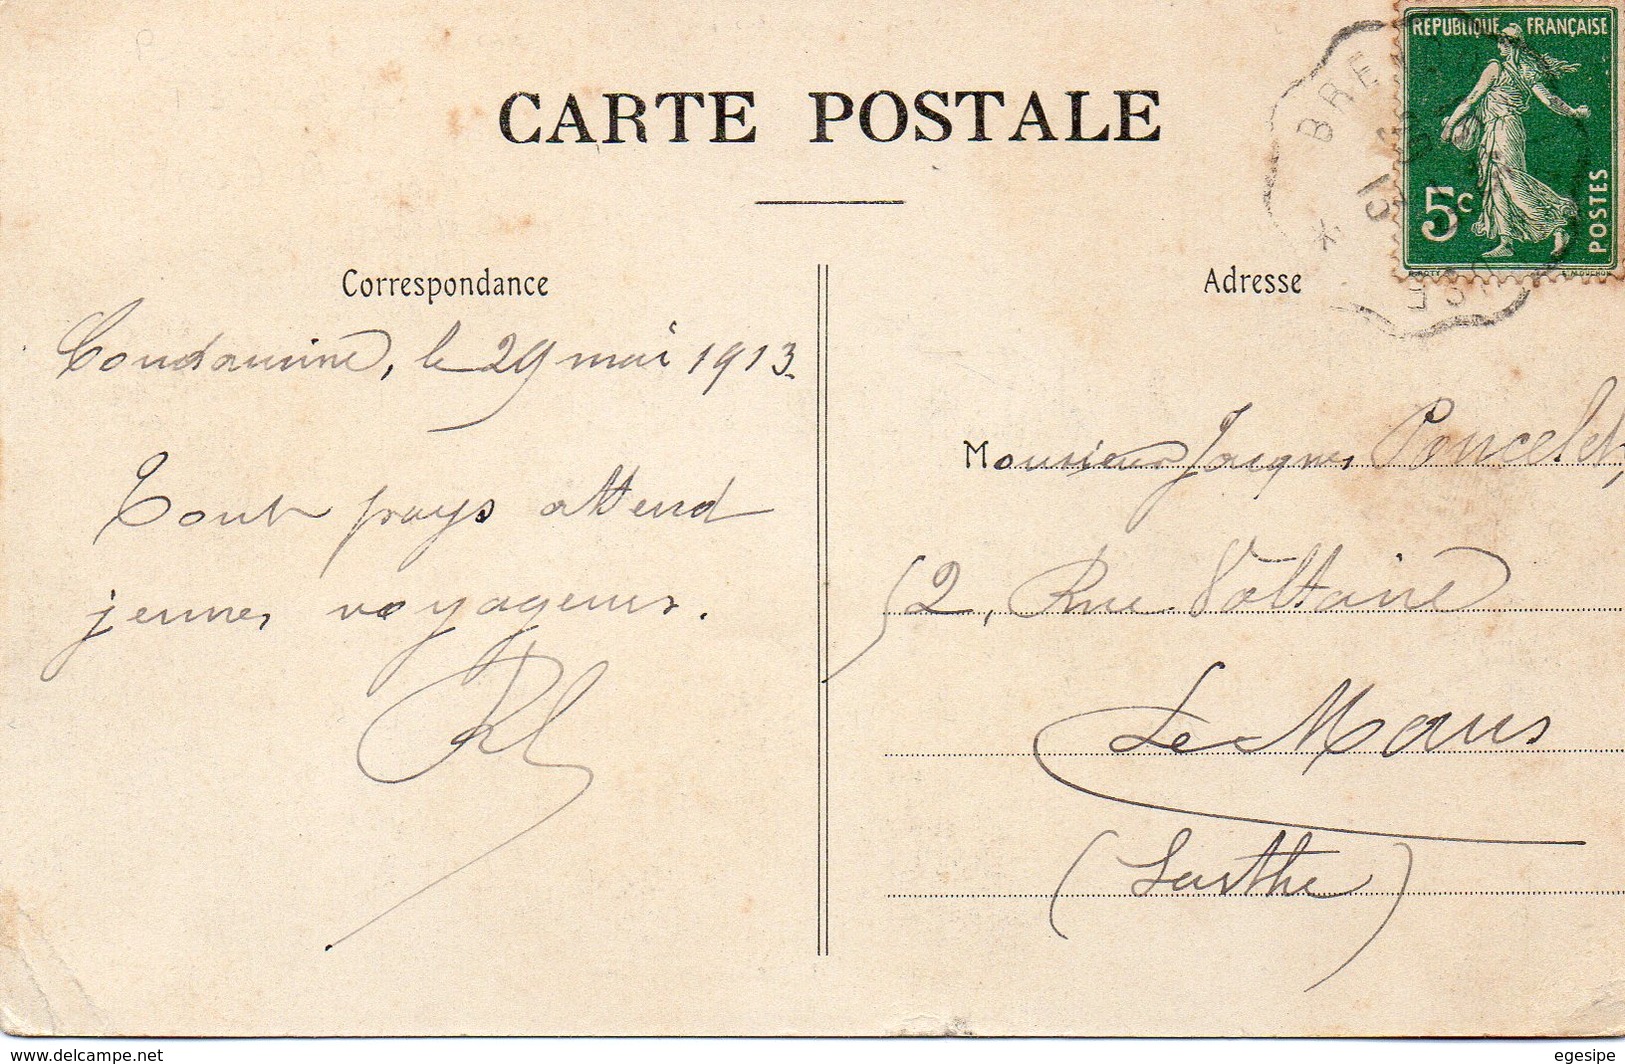 CARTE POSTALE
RÉPUBLIQUE FRANÇAISE
5c
POSTES
BRE
Correspondance
Condamine, le 29 mai 1913.
Tout pays attend
jeunes voyageurs.
Adresse
Monsieur Jacques Poncelet,
52, Rue Voltaire
Le Mans
(Sarthe)
www.delcampe.net
egesipe